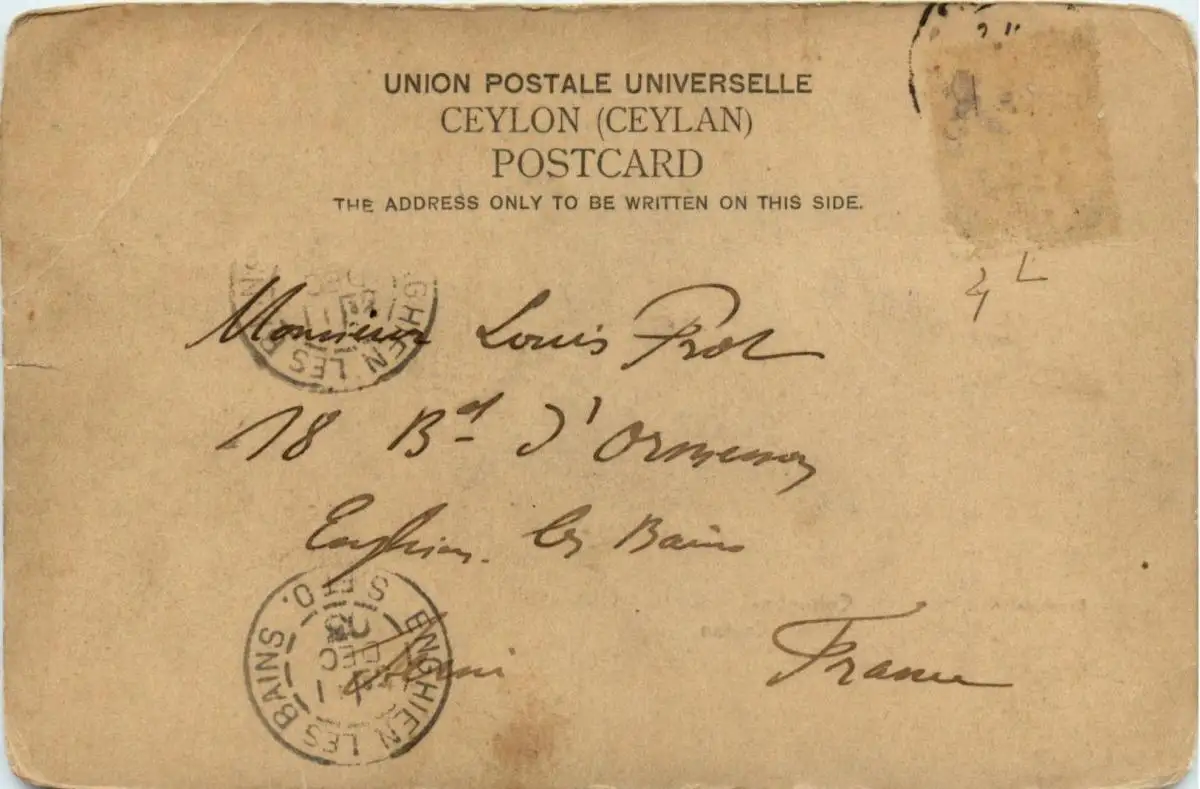 UNION POSTALE UNIVERSELLE
CEYLON (CEYLAN)
POSTCARD
THE ADDRESS ONLY TO BE WRITTEN ON THIS SIDE.
Monsieur Louis Prot
18 Bd d'Ormesson
Enghien les Bains
France
ENGHIEN LES BAINS
S. ET O.
ENGHIEN LES
DEC